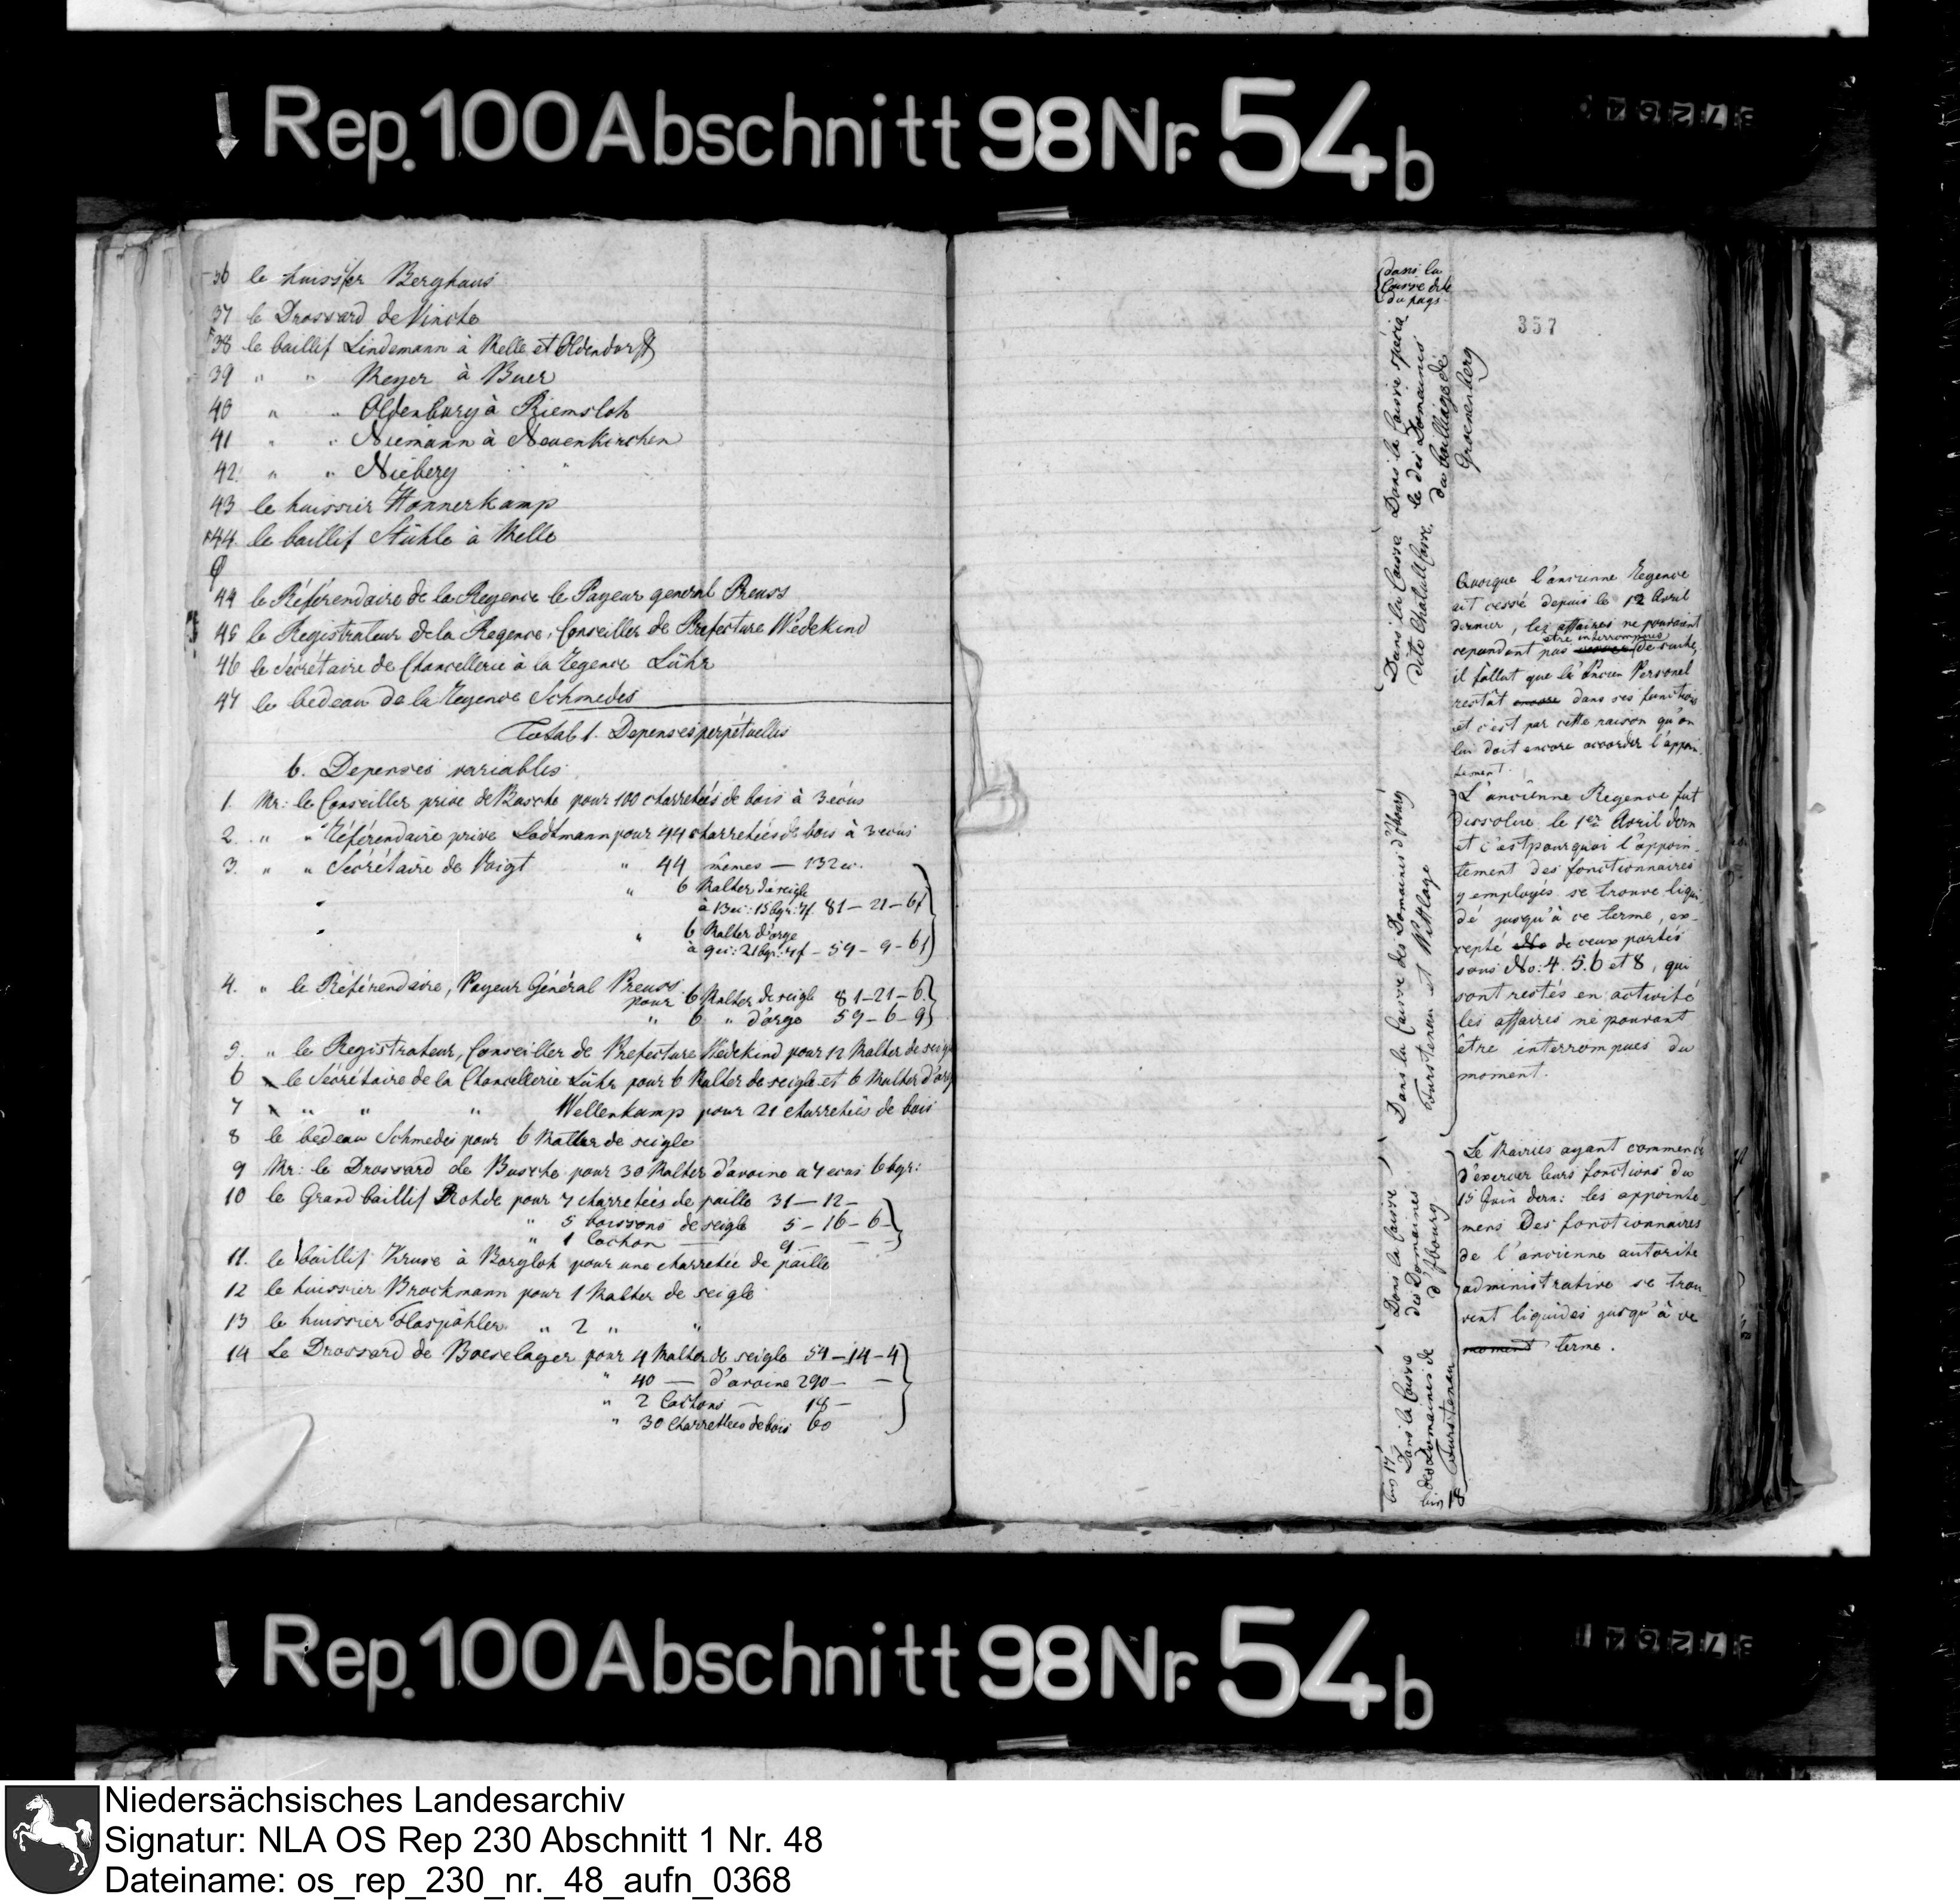 Rep. 100 Abschnitt 98 Nr. 54b
36 le huissier Berghaus
37 le Drossard de Vincke
38 le baillif Lindemann à Melle et Oldendorff
39 " " Meyer à Buer
40 " " Oldenburg à Riemsloh
41 " " Niemann à Neuenkirchen
42. " " Nieberg " "
43 le huissier Honnerkamp
44 le baillif Stühle à Melle
44 le Référendaire de la Regence le Payeur general Preuss
45 le Registrateur de la Regence, Conseiller de Prefecture Wedekind
46 le Sécrétaire de Chancellerie à la Regence Lühr
47 le bedeau de la Regence Schmedes
Total 1. Depenses perpétuelles
b. Depenses variables
1. Mr: le Conseiller prive de Busche pour 100 charretées de bois à 3 écus
2. " " Référendaire prive Lodtmann pour 44 charretiés de bois à 3 ecus
3. " " Secrétaire de Voigt " 44 mêmes — 132 ec.
" 6 Malter de seigle
à 13 ec: 15 bgr: 7f. 81 — 21 — 6f
" 6 Malter d'orge
à 9 ec: 21 bgr: 7f — 59 — 9 — 6f
4. " le Référendaire, Payeur Général Preuss
pour 6 Malter de seigle 81 — 21 — 6.
" 6 " d'orge 59 — 6 — 9
5. " le Registrateur, Conseiller de Prefecture Wedekind pour 12 Malter de seigle
6 le Sécrétaire de la Chancellerie Lühr pour 6 Malter de seigle et 6 Malter d'orge
7 " " " Wellenkamp pour 21 charretiés de bois
8 le bedeau Schmedes pour 6 Malter de seigle
9 Mr: le Drossard de Busche pour 30 Malter d'avoine a 7 ecus 6 bgr:
10 le Grand baillif Rohde pour 7 charretées de paille 31 — 12 —
" 5 boissons de seigle 5 — 16 — 6
" 1 Cochon — 9 — —
11. le baillif Kruse à Borgloh pour une charretée de paille
12 le huissier Brockmann pour 1 Malter de seigle
13 le huissier Flaspöhler " 2 " "
14 Le Drossard de Boeselager pour 4 Malter de seigle 54 — 14 — 4
" 40 — d'avoine 290 — —
" 2 Cochons — 18 —
" 30 Charrettees de bois 60
dans la
Caisse dite
du pays
357
Dans la Caisse spécia
le des Domaines
du bailliage de
Groenenberg
Dans la Caisse
dite Chatull Casse
Quoique l'ancienne Regence
ait cessé depuis le 1er Avril
dernier, les affaires ne pouvaient
cependant pas être interrompues de suite,
il fallut que l'ancien Personel
restât encore dans ses fonctions
et c'est par cette raison qu'on
lui doit encore accorder l'appoin
tement.
Dans la Caisse des Domaines d'Ibourg
Furstenau et Wittlage
L'ancienne Regence fut
dissolue le 1er Avril dern
et c'est pourquoi l'appoin-
tement des fonctionnaires
y employés se trouve liqui
dé jusqu'à ce terme, ex-
cepté de ceux portés
sous No: 4. 5. 6 et 8, qui
sont restés en activité
les affaires ne pouvant
être interrompues du
moment.
Dans la Caisse
des Domaines
d'Ibourg
Le Mairies ayant commencé
d'exercer leurs fonctions du
15 Juin dern: les appointe
mens Des fonctionnaires
de l'ancienne autorité
administrative se trou
vent liquides jusqu'à ce
moment terme.
Dans la Caisse
des Domaines de
Furstenau
bis 17
Rep. 100 Abschnitt 98 Nr. 54b
Niedersächsisches Landesarchiv
Signatur: NLA OS Rep 230 Abschnitt 1 Nr. 48
Dateiname: os_rep_230_nr._48_aufn_0368